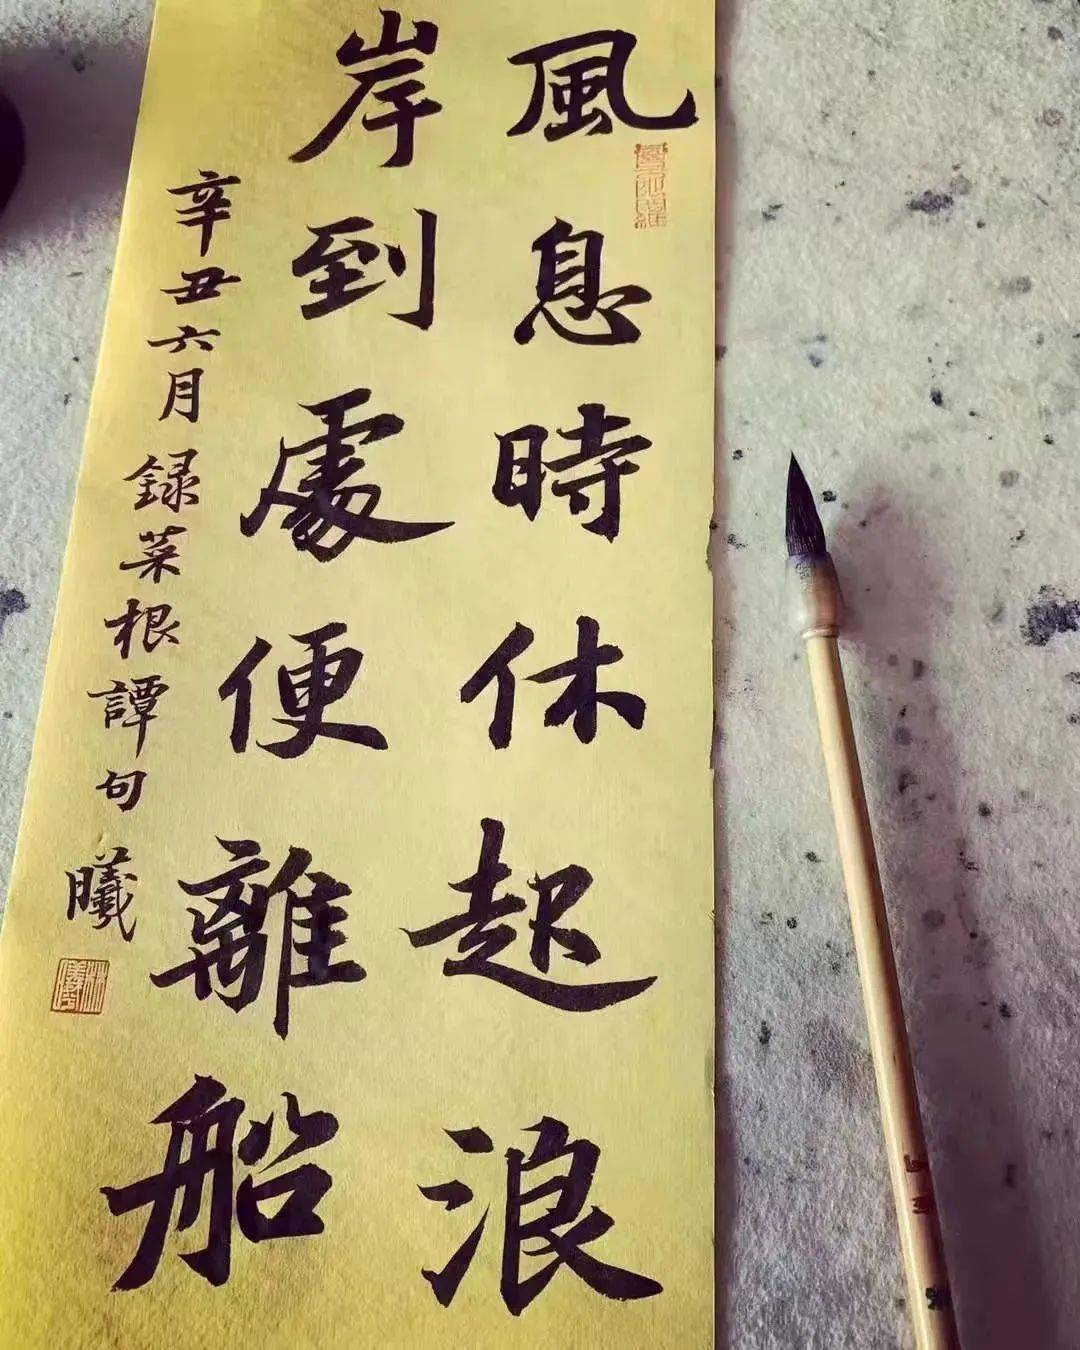 風息時休起浪
岸到處便離船
辛丑六月録菜根譚句曦